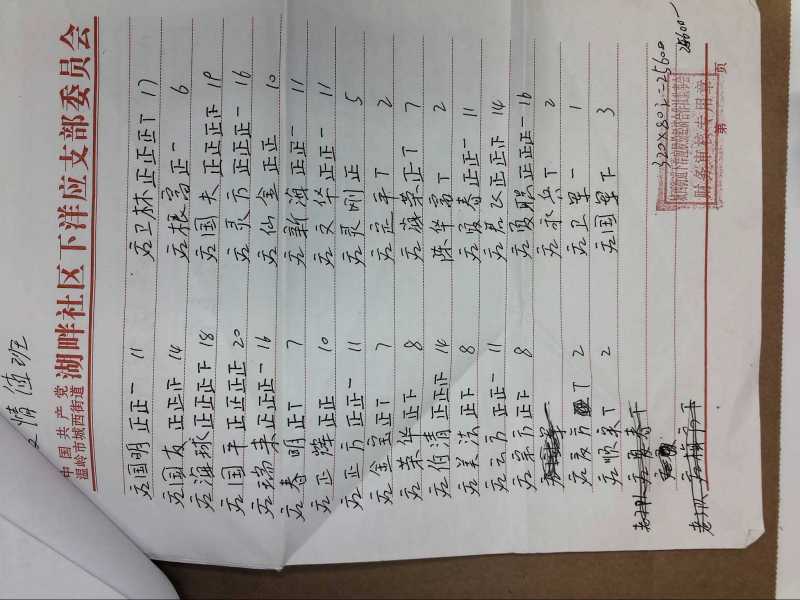 情值班
中国共产党
温岭市城西街道
湖畔社区下洋应支部委员会
应国明 正正一 11 应卫林 正正正丅 17
应国友 正正正 14 应根富 正一 6
应海球 正正正下 18 应国夫 正正正正 19
应国平 正正正正 20 应灵方 正正正一 16
应瑞来 正正正一 16 应仙金 正正 10
应春明 正丅 7 应新海 正正一 11
应正辉 正正 10 应文华 正正一 11
应正方 正正一 11 应灵刚 正 5
应金宝 正丅 7 应定平 丅 2
应荣华 正下 8 应荣 正丅 7
应伯清 正正正 14 陈华富 丅 2
应关法 正下 8 应夏春 正正一 11
应云方 正正一 11 应君 正正正 14
应宗方 正下 8 应夏 正正正一 16
应永兵 丅 2
应友方 丅 2 应卫军 一 1
应顺来 丅 2 应国军 下 3
320×80元=25600
25600
财务审核专用章
第 页